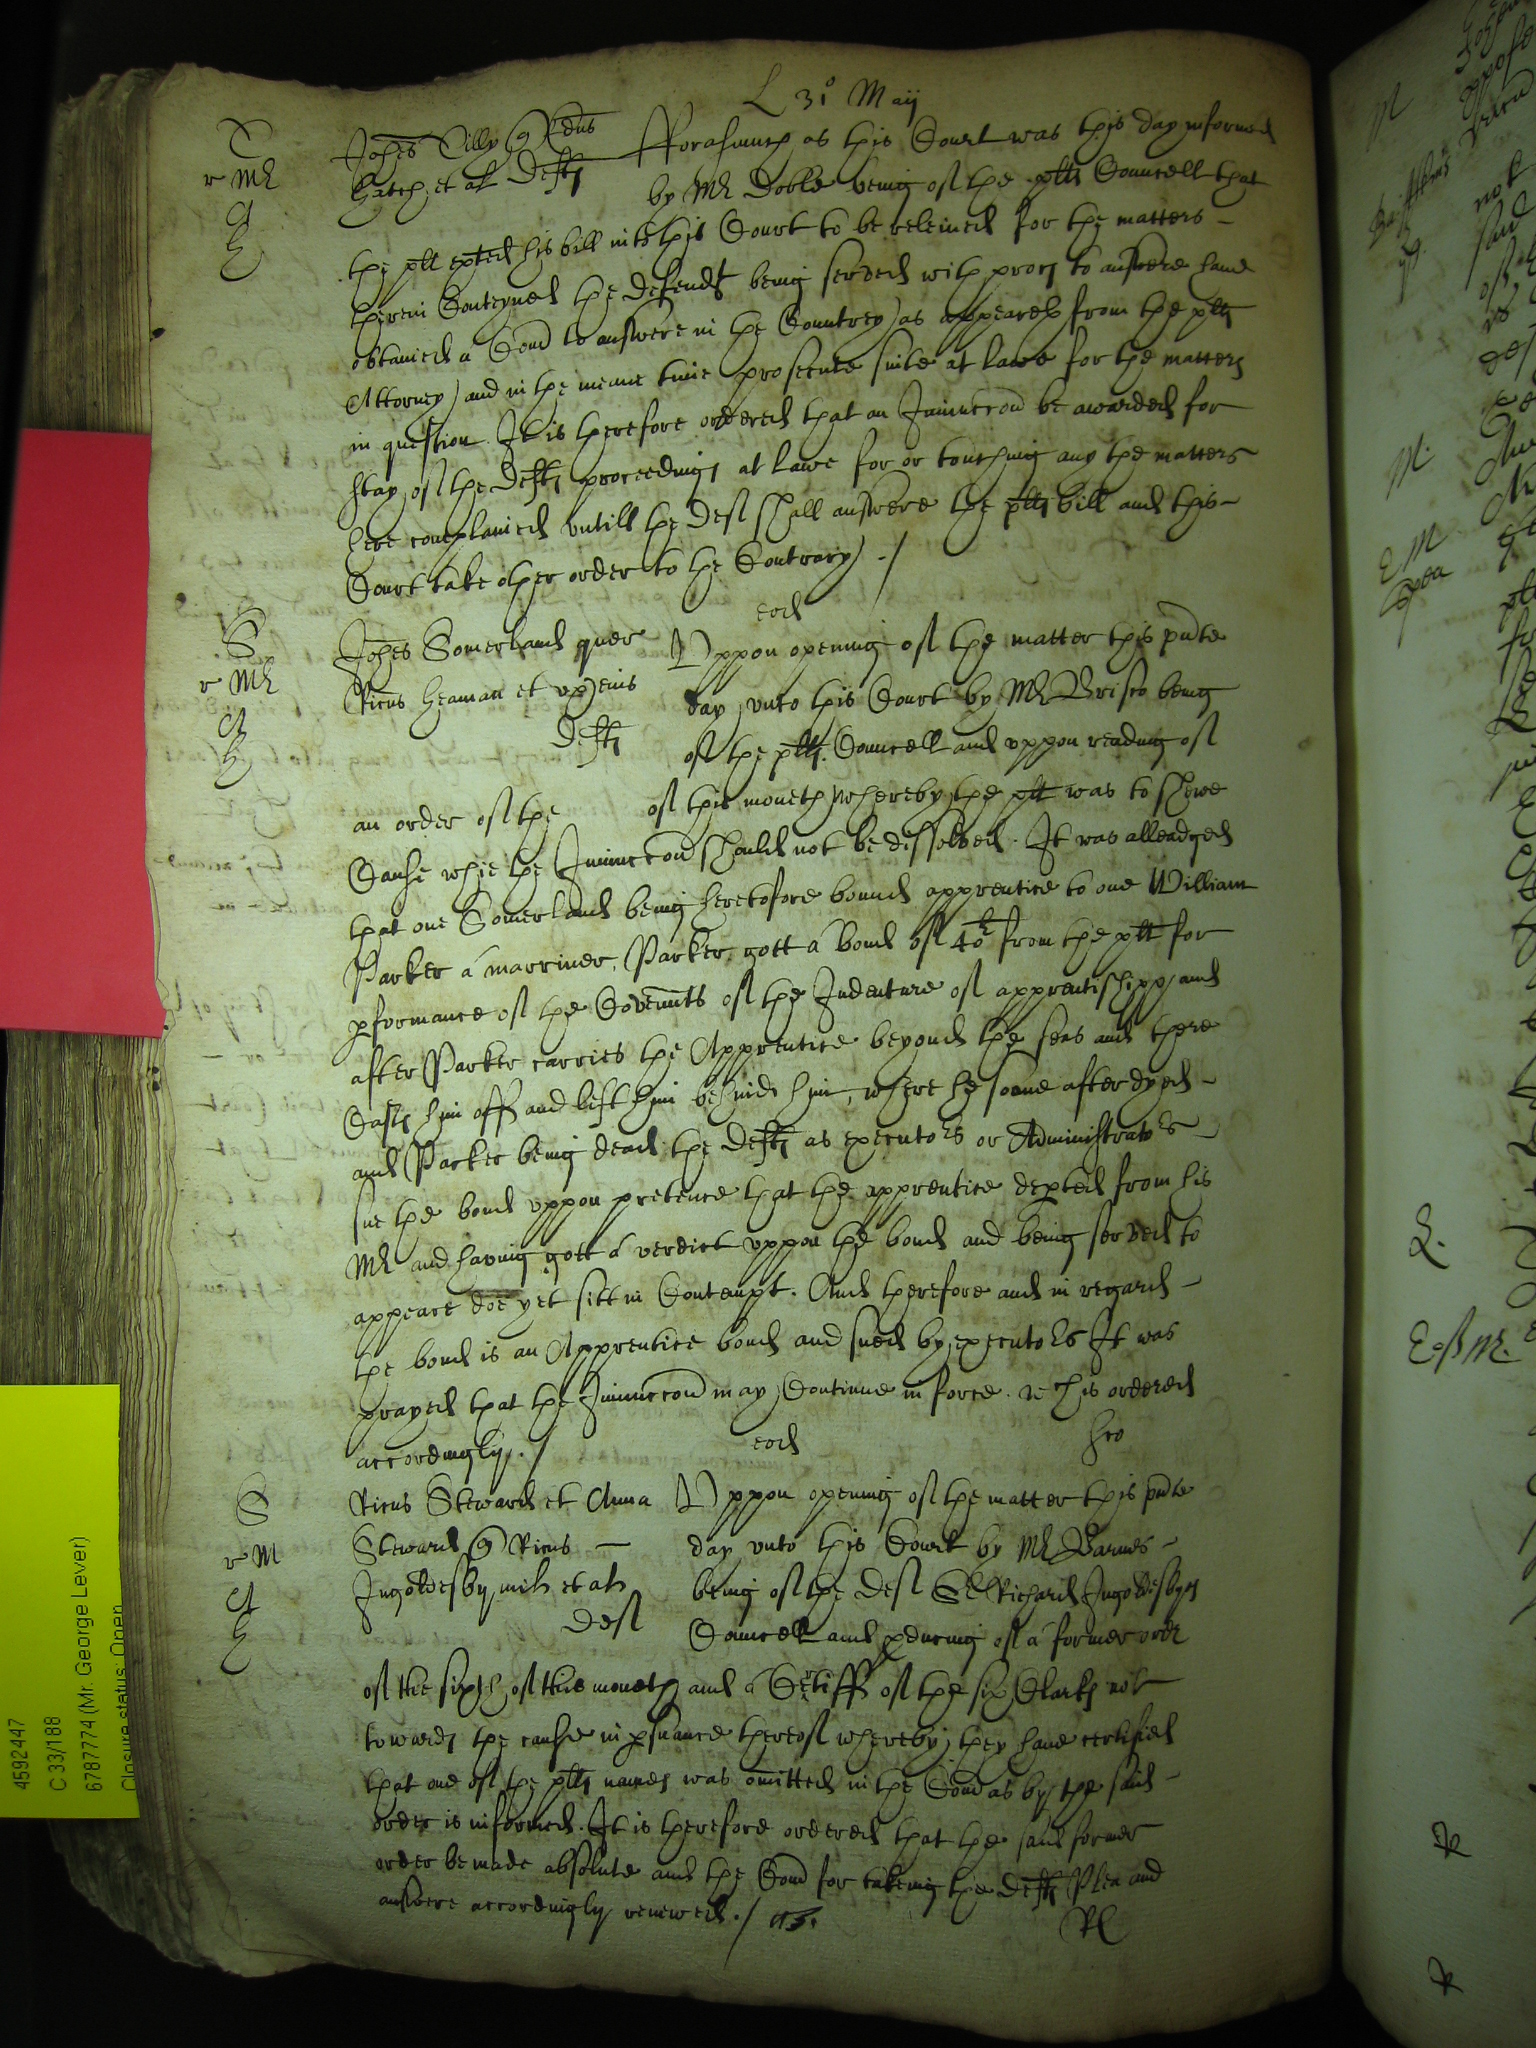 L 31° Maij
T
r Mr
A
H
Johes Tilly q Edus Forasmuch as this Court was this day informed
Hatch et al Defts by Mr Doble being of the plts Councell that
the plt exhted his bill into this Court to be releived for the matters
therein Conteyned the Defendts being served with proces to answere have
obtained a Com to answere in the Countrey as appeareth from the plts
Attorney and in the meane time prosecute suite at lawe for the matters
in question. It is therefore ordered that an Iniunccon be awarded for
stay of the Defts proceedings at lawe for or touching any the matters
here complained untill the Def shall answere the plts bill and this
Court take other order to the Contrary ./
S
r Mr
A
H
eod
Johes Somerland quer Uppon opening of the matter this pnte
Ricus Heaman et ux eius day unto this Court by Mr Brisco being
Defts of the plts Councell and uppon reading of
an order of the of this moneth whereby the plt was to shewe
Cause whie the Iniunccon should not be dissolved. It was alleadged
that one Somerland being heretofore bound apprentice to one William
Parker a marriner, Parker gott a Bond of 40l from the plt for
pformance of the Covennts of the Indenture of apprentishipp and
after Parker carries the Apprentice beyond the seas and there
Casts him off and left him behinde him, where he soone after dyed
and Parker being dead the Defts as executors or Administrators
sue the bond uppon pretence that the apprentice depted from his
Mr and having gott a verdict uppon the bond and being served to
appeare doe yet sitt in Contempt. And therefore and in regard
the bond is an Apprentice bond and sued by executors It was
prayed that the Iniunccon may Continue in force. wch is ordered
accordingly ./
eod
S
r M
A
H
Ricus Steward et Anna Uppon opening of the matter this pnte
Steward q Ricus day unto this Court by Mr Barnes
Ingoldesby mil et al being of the Def Sr Richard Ingoldesbyes
Def Councell and pducing of a former ordr
of the sixth of this moneth and a Certiff of the six Clarks not
towards the cause in psuance thereof whereby they have certified
that one of the plts names was omitted in the Com as by the said
order is informed. It is therefore ordered that the said former
order be made absolute and the Com for takeing the Defts Plea and
answere accordingly renewed ./
4592447
C 33/188
6787774 (Mr. George Lever)
Closure status: Open